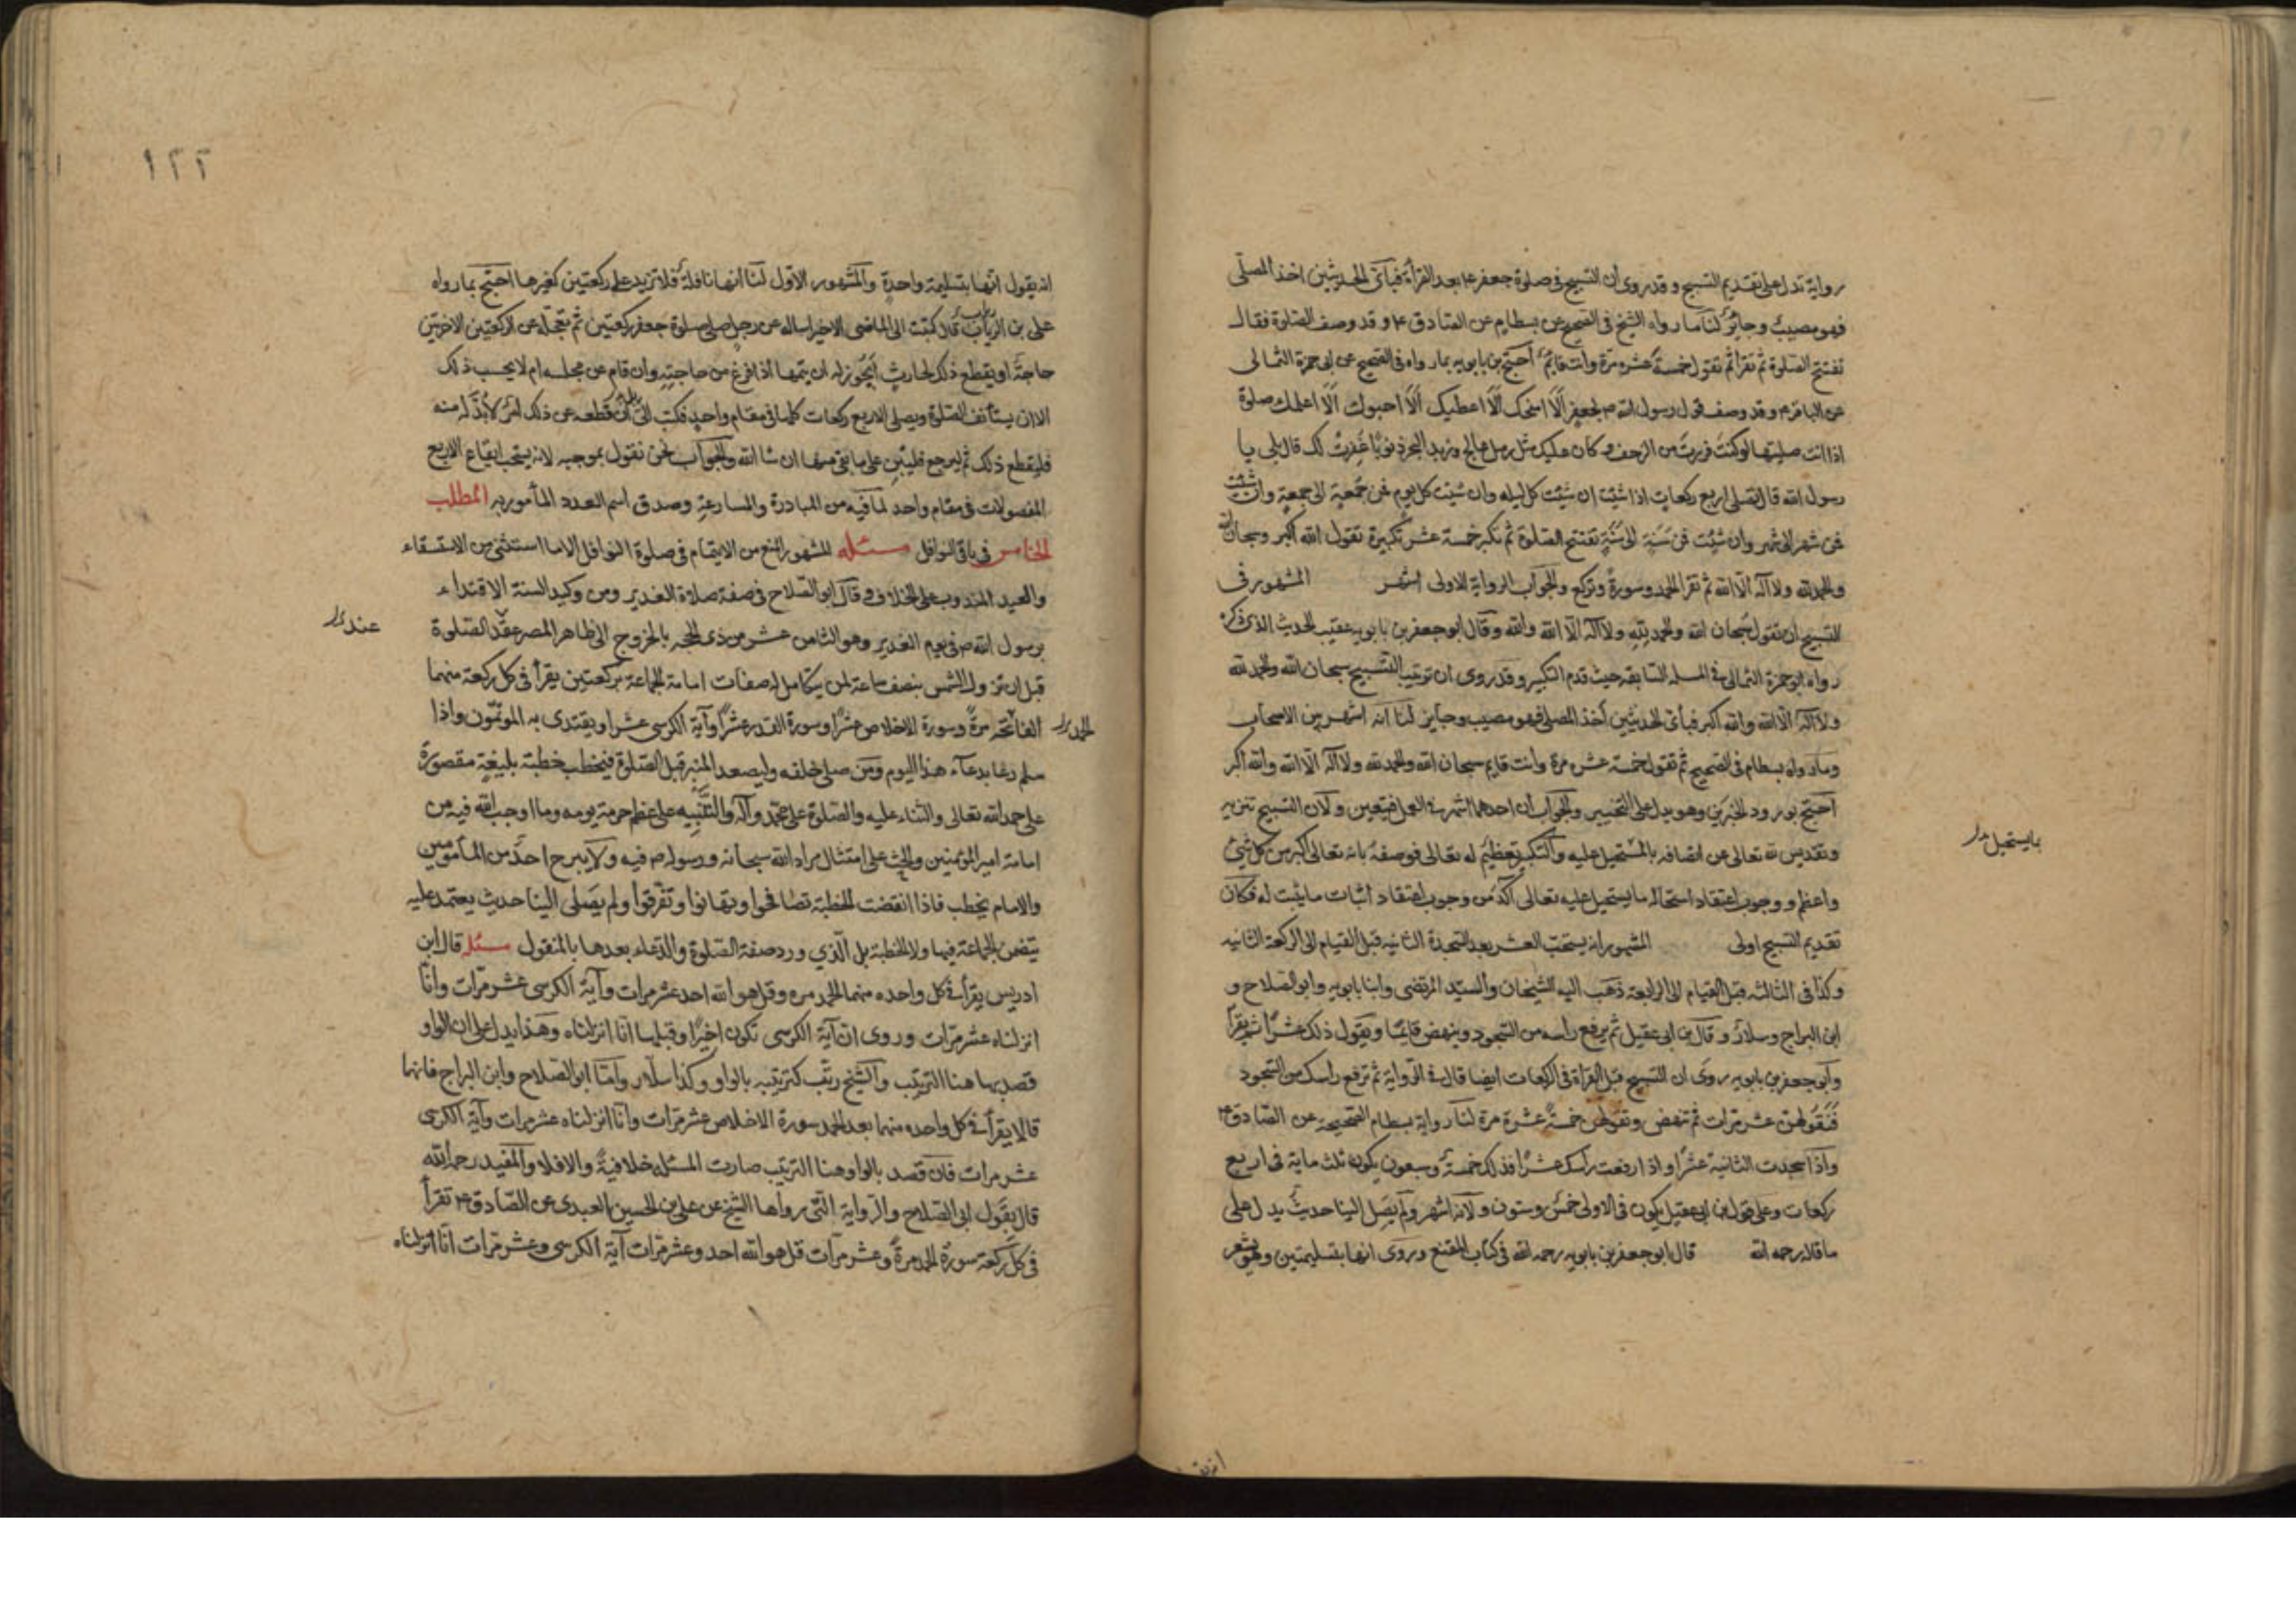 رواية تدل على تقديم التسبيح و قد روى ان التسبيح فى صلوة جعفر ع بعد القرأة فبأى الحديثين اخذ المصلى
فهو مصيب وجايز لنا ما رواه الشيخ فى الصحيح عن بسطام عن الصادق ع و قد وصف الصلوة فقال
تفتتح الصلوة ثم تقرأ ثم تقول خمسة عشره مرة وانت قايم احتج بن بابويه بما رواه فى الصحيح عن ابى حمزة الثمالى
عن الباقر ع و قد وصف قول رسول الله ص لجعفر ألا امنحك ألا اعطيك ألا احبوك ألا اعلمك صلوة
اذا انت صليتها لو كنت فررت من الزحف و كان عليك مثل رمل عالج وزبد البحر ذنوبا غفرت لك قال بلى يا
رسول الله قال تصلى اربع ركعات اذا شئت ان شئت كل ليله وان شئت كل يوم فمن جمعة الى جمعة وان شئت
فمن شهر الى شهر وان شئت فمن سنة الى سنة تفتتح الصلوة ثم تكبر خمسة عشر تكبيرة تقول الله اكبر وسبحان الله
والحمد لله ولا اله الا الله ثم تقرأ الحمد وسورة وتركع والجواب الرواية الاولى اشهر المشهور فى
التسبيح ان تقول سبحان الله والحمد لله ولا اله الا الله والله وقال ابو جعفر بن بابويه عقيب الحديث الذى ذكره
رواه ابو حمزة الثمالى فى المسله السابقه حيث قدم التكبير و قد روى ان ترتيب التسبيح سبحان الله والحمد لله
ولا اله الا الله والله اكبر فبأى الحديثين أخذ المصلى فهو مصيب وجايز لنا انه اشهر بين الاصحاب
وما رواه بسطام فى الصحيح ثم تقول خمسة عشر مرة وانت قايم سبحان الله والحمد لله ولا اله الا الله والله اكبر
احتج بورود الخبرين وهو يدل على التخيير والجواب ان احدهما اشهر فى العمل فيتعين ولان التسبيح تنزيه
وتقديس لله تعالى عن اتصافه بالمستحيل عليه والتكبير تعظيم له تعالى فوصفه بانه تعالى اكبر من كل شئ
بما يستحيل
واعظم ووجوب اعتقاد استحاله ما يستحيل عليه تعالى آكد من وجوب اعتقاد اثبات ما يثبت له فكان
تقديم التسبيح اولى المشهور انه يستحب العشر بعد السجدة الثانيه قبل القيام الى الركعة الثانيه
وكذا فى الثالثه قبل القيام الى الرابعة ذهب اليه الشيخان والسيد المرتضى وابنا بابويه وابو الصلاح و
ابن البراج وسلار وقال بن ابى عقيل ثم يرفع راسه من السجود وينهض قايما ويقول ذلك عشرا ثم يقرأ
وابو جعفر بن بابويه روى ان التسبيح قبل القراة فى الركعات ايضا قال فى الرواية ثم ترفع راسك من السجود
فتقولهن عشر مرات ثم تنهض وتقولهن خمسة عشرة مرة لنا رواية بسطام الصحيحة عن الصادق ع
واذا سجدت الثانية عشرا و اذا رفعت راسك عشرا فذلك خمسة وسبعون يكون ثلث ماية فى اربع
ركعات وعلى قول بن ابى عقيل يكون فى الاولى خمس وستون ولانه اشهر ولم يصل الينا حديث يدل على
ما قاله رحمه الله قال ابو جعفر بن بابويه رحمه الله فى كتاب المقنع وروى انها بتسليمتين وهو يشعر
١٢٢
انه يقول انها بتسليمة واحدة والمشهور الاول لنا انها نافلة فلا تزيد على ركعتين كغيرها احتج بما رواه
على بن الريان قال كتبت الى الماضى الاخير اساله عن رجل صلى صلوة جعفر ركعتين ثم تعجله عن الركعتين الاخرتين
حاجة او يقطع ذلك لحادث أيجوز له ان يتمها اذا فرغ من حاجته وان قام عن مجلسه ام لا يحسب ذلك
الا ان يستأنف الصلوة ويصلى الاربع ركعات كلها فى مقام واحد فكتب الى ان قطعه عن ذلك امر لا بد له منه
فليقطع ذلك ثم ليرجع فليبن على ما بقى منها ان شا الله والجواب نحن نقول بموجبه لانه يستحب ايقاع الاربع
المفصولات فى مقام واحد لما فيه من المبادرة والمسارعة وصدق اسم العدد المأمور به المطلب
الخامس فى باقى النوافل مسئله المشهور المنع من الايتمام فى صلوة النوافل الا ما استثنى من الاستسقاء
والعيد المندوب على الخلاف وقال ابو الصلاح فى صفة صلاة الغدير ومن وكيد السنة الاقتداء
برسول الله ص فى يوم الغدير وهو الثامن عشر من ذى الحجه بالخروج الى ظاهر المصر عقد الصلوة
عند
قبل ان تزول الشمس بنصف ساعة لمن يتكامل له صفات امامة الجماعة بركعتين يقرأ فى كل ركعة منهما
الفاتحة مرة وسورة الاخلاص عشرا وسورة القدر عشرا وآية الكرسى عشرا ويقتدى به المؤتمون واذا
الحمد
سلم دعا بدعاء هذا اليوم ومن صلى خلفه وليصعد المنبر قبل الصلوة فيخطب خطبة بليغة مقصورة
على حمد الله تعالى والثناء عليه والصلوة على محمد وآله والتنبيه على عظم حرمة يومه وما اوجب الله فيه من
امامة امير المؤمنين والحث على امتثال مراد الله سبحانه ورسوله ص فيه ولا يبرح احد من المأمومين
والامام يخطب فاذا انقضت الخطبة تصافحوا وتهانوا وتفرقوا ولم يصل الينا حديث يعتمد عليه
يتضمن الجماعة فيها ولا الخطبة بل الذي ورد صفة الصلوة والدعاء بعدها بالمنقول مسئله قال ابن
ادريس يقرأ فى كل واحده منهما الحمد مره وقل هو الله احد عشر مرات وآية الكرسى عشر مرات وانا
انزلناه عشر مرات وروى ان آية الكرسى تكون اخيرا وقبلها انا انزلناه وهذا يدل على ان الواو
قصد بها هنا الترتيب والشيخ رتب كترتيبه بالواو وكذا سلار واما ابو الصلاح وابن البراج فانهما
قالا يقرأ فى كل واحده منهما بعد الحمد سورة الاخلاص عشر مرات وانا انزلناه عشر مرات وآية الكرسى
عشر مرات فان قصد بالواو هنا الترتيب صارت المسئله خلافية والا فلا والمفيد رحمه الله
قال بقول ابى الصلاح والرواية التى رواها الشيخ عن على بن الحسين العبدى عن الصادق ع تقرأ
فى كل ركعة سورة الحمد مرة وعشر مرات قل هو الله احد وعشر مرات آية الكرسى وعشر مرات انا انزلناه